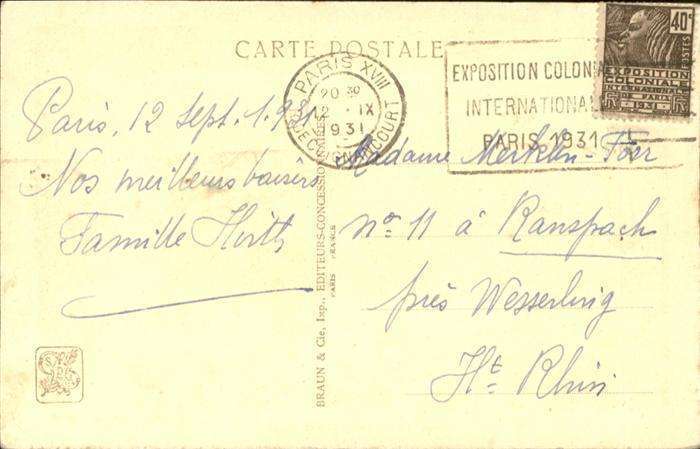 CARTE POSTALE
PARIS XVIII
20 30
12 · IX
1931
R. DUC
EXPOSITION COLONIALE
INTERNATIONALE
PARIS 1931
40c
POSTES
EXPOSITION
COLONIALE
INTERNATIONALE
DE PARIS
1931
Paris, 12 Sept. 1931
Nos meilleurs baisers
Famille
Madame
no 11 à Ranspach
près Wesserling
Ht Rhin
BRAUN & Cie, Imp., EDITEURS-CONCESSIONNAIRES
PARIS FRANCE